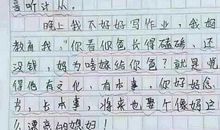 言听计从。
晚上我不好好写作业，我妈
教育我，"你看你爸长得磕碜，还
没钱，妈为啥嫁给你爸？就是觉
得他有文化，有本事，你好好念
书，长本事，将来也整个像妈这
么漂亮的媳妇！